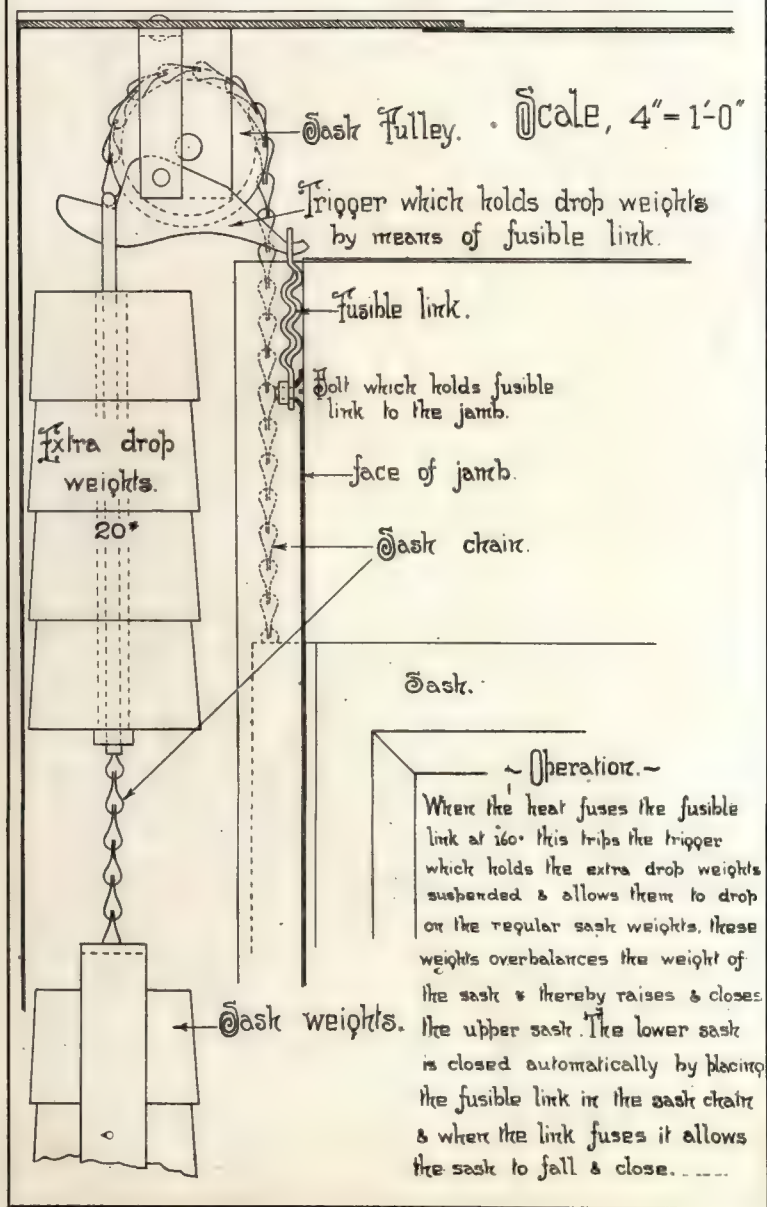 Sash Pulley.
Scale, 4"= 1'-0"
Trigger which holds drop weights
by means of fusible link.
Fusible link.
Bolt which holds fusible
link to the jamb.
Extra drop
weights.
20#
face of jamb.
Sash chain.
Sash.
~ Operation. ~
When the heat fuses the fusible
link at 160° this trips the trigger
which holds the extra drop weights
suspended & allows them to drop
on the regular sash weights, these
weights overbalances the weight of
the sash & thereby raises & closes
the upper sash. The lower sash
is closed automatically by placing
the fusible link in the sash chain
& when the link fuses it allows
the sash to fall & close.
Sash weights.